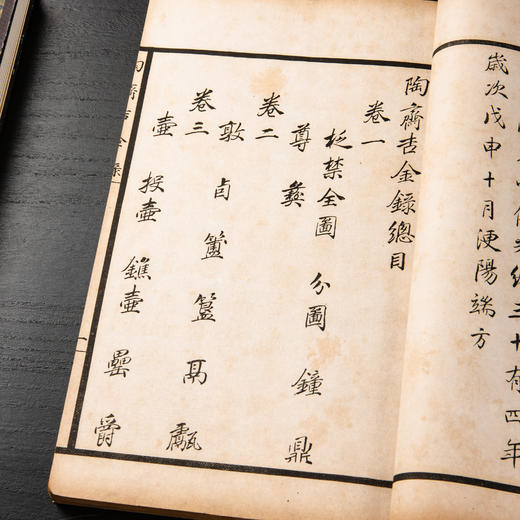 光緒三十有四年
歲次戊申十月浭陽端方
陶齋吉金錄總目
卷一
柉禁全圖 分圖 鐘 鼎
尊 彝
卷二
敦 卣 簠 簋 鬲 甗
卷三
壺 投壺 鐎壺 罍 爵
陶齋吉金錄
一